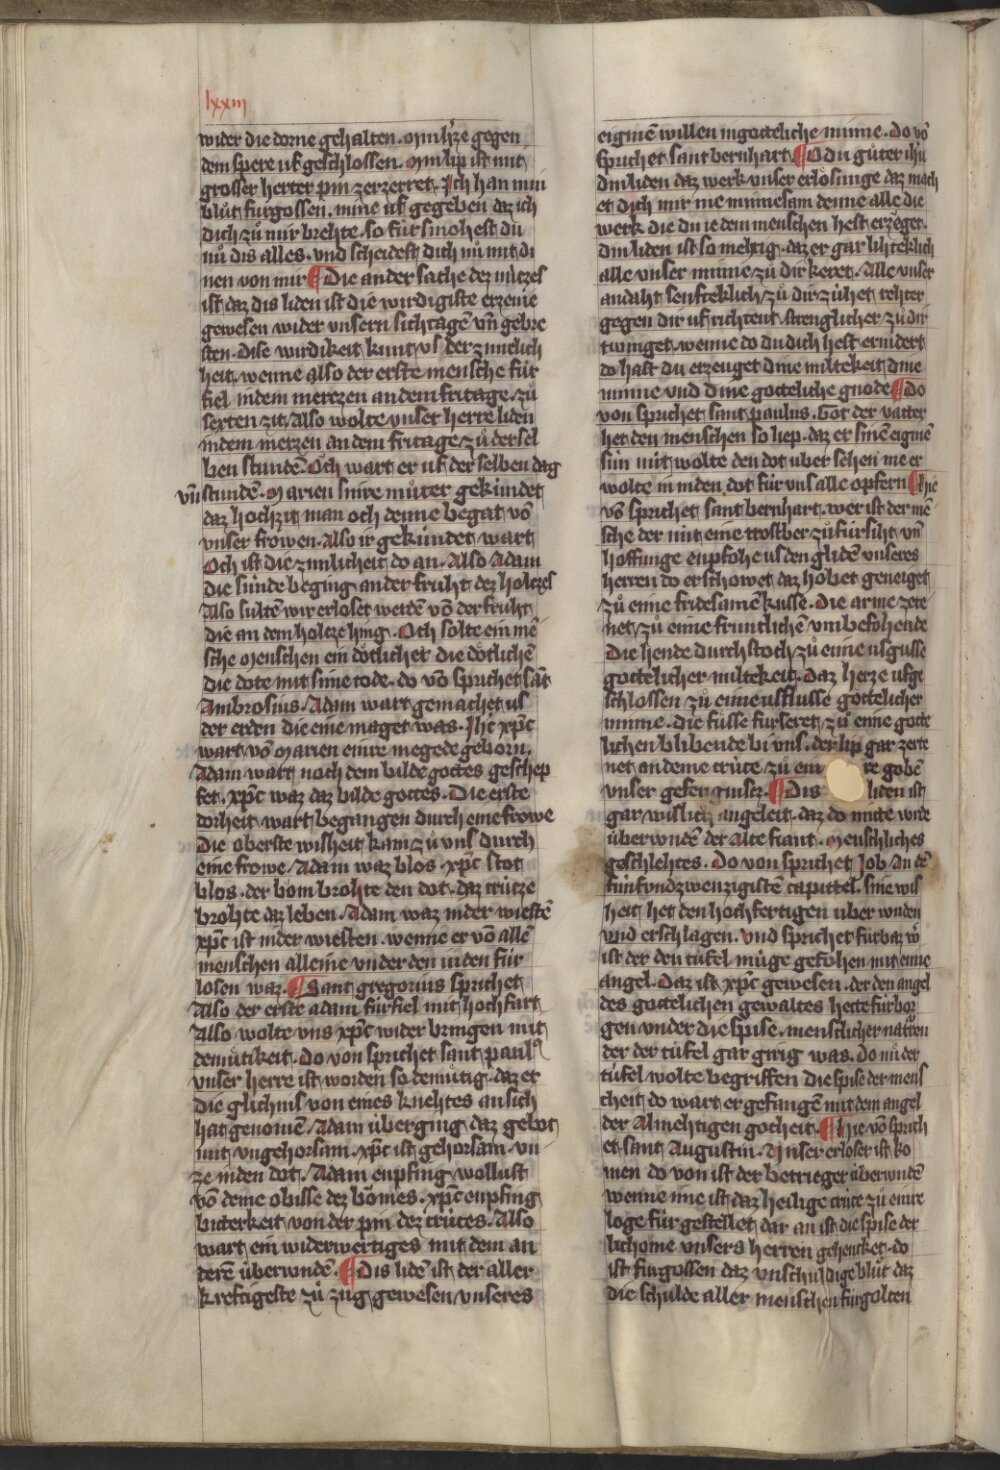 lxxiii
wider die dorne gehalten. Min h'ze gegen
dem spere uf geschlossen. Min lip ist mit
grosser herter pin zerzerret. Ich han min
blůt furgossen. mine uf gegeben daz ich
dich zů mir brehte. so fúrsmohest du
nů dis alles. vnd scheidest dich nů mit di
nen von mir ¶ Die ander sache dez nútzes
ist daz dis liden ist die wirdigiste erzenie
gewesen wider vnsern sichtagē vn̄ gebre
sten. Dise wirdikeit kunt vs der zimlich
heit. wenne also der erste mensche fúr
fiel indem merczen an dem fritage. zů
sexten zit. Also wolte vnser herre liden
indem merzen an dem fritage zů der sel
ben stundē. Och wart er uf der selben dag
vn̄ stundē. Marien sinre můter gekúndet
daz hochzit man och denne begat vō
vnser frowen. Also ir gekúndet wart
Och ist die zimlicheit do an. Also Adam
die súnde beging an der fruht dez holtzes
Also sultē wir erloset werdē vō der fruht
die an dem holtze hing. Och solte ein mē
sche Menschen ein dótlicher die dótlichē
die dote mit sime tode. do vō sprichet sāt
Ambrosius. Adam wart gemachet us
der erden die eine maget was. Ihc xp̄c
wart vō Marien einre megede geborn.
Adam wart noch dem bilde gottes geschep
fet. xp̄c waz daz bilde gottes. Die erste
dorheit wart begangen durch eine frowe
Die oberste wisheit kam zů vns durch
eine frowe. Adam waz blos. xp̄c stot
blos. der bom brohte den dot. daz crútze
brohte daz leben. Adam waz inder wiestē
xp̄c ist inder wiesten. wenne er vō allē
menschen alleine vnder den iuden fúr
losen waz. ¶ Sant gregorius sprichet
Also der erste adam fúrfiel mit hochfart
Also wolte vns xp̄c wider bringen mit
demůtikeit. Do von sprichet sant paul9
vnser herre ist worden so demůtig. daz er
die glichnis von eines knehtes an sich
hat genomē. Adam úberging daz gebot
mit vngehorsam. xp̄c ist gehorsam vn
ze inden dot. Adam enpfing wollust
vō deme obisse dez bómes. xp̄c enpfing
bitterkeit von der pin dez crútes. Also
wart ein widerwertiges mit dem an
derē úberwndē. ¶ Dis lidē ist der aller
kreftigeste zů zug gewesen vnseres
eiginē willen in gotteliche minne. Do vō
sprichet sant bernhart. ¶ O du gůter ihū
din liden daz werk vnser erlósunge daz mach
et dich mir me minnesam denne alle die
werk die du ie dem menschen hest erzeget.
din liden ist so mehtig. daz er gar lihteklich
alle vnser minne zů dir keret. Alle vnser
andaht senfteklich zů dir zúhet rehter
gegen dir uf richtent strenglicher zů dir
twinget. wenne do du dich hest ernidert
do hast du erzeuget dine miltekeit dine
minne vnd dine gotteliche gnode ¶ Do
von sprichet sant paulus. Got der vatter
het den menschen so liep. daz er sinē eiginē
sun nút wolte den dot uber sehen me er
wolte in inden dot fúr vns alle opfern ¶ Hie
vō sprichet sant bernhart. wer ist der mē
sche der nút eine trostber zů fúrsiht vn̄
hoffunge enpfohe us den glidē vnseres
herren do er schowet daz hóbet geneiget
zů eime fridesamē kusse. Die arme zerte
net zů eime fruntlichē vmbefohende
Die hende durchstoch zů eime usgusse
gottelicher miltekeit. Daz herze ufge
schlossen zů eime usflusse gottelicher
minne. die fússe furseret zů eime gotte
lichen blibende bi vns. der lip gar zerte
net an deme crúte zů ein re gobē
vnser gefengnisz. ¶ Dis liden ist
gar wislich angeleit. daz do mitte wrde
úberwndē der alte fiant. Menschliches
geschlehtes. Do von sprichet Job An dē
fúnfvndzwenzigistē capittel. sine wis
heit het den hochfertigen uber wnden
vnd erschlagen. vnd sprichet fúrbaz w̄
ist der den túfel múge gefohen mit eime
angel. Daz ist xp̄c gewesen. der den angel
des gottelichen gewaltes hette fúrbor
gen vnder die spise. menslicher natren
der der túfel gar girig was. do nů der
túfel wolte begriffen die spise der mens
cheit do wart er gefangē mit dem angel
der Almehtigen gotheit. ¶ Hie vō sprich
et sant Augustin. Vnser erloser ist ko
men do von ist der betrieger úberwndē
wenne ime ist daz heilige crúte zů einre
loge fúr gestellet dar an ist die spise der
lichome vnsers herren gehencket. do
ist furgossen daz vnschuldige blůt daz
die schulde aller menschen fúrgolten